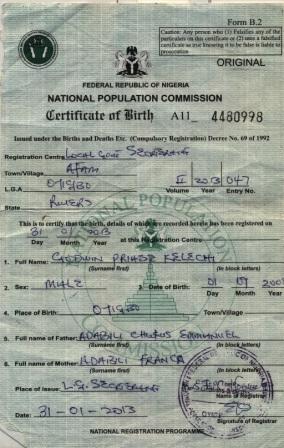 Form B.2
Caution: Any person who (1) Falsifies any of the
particulars on this certificate or (2) uses a falsified
certificate as true knowing it to be false is liable to
prosecution
ORIGINAL
FEDERAL REPUBLIC OF NIGERIA
NATIONAL POPULATION COMMISSION
Certificate of Birth A11_ 4480998
Issued under the Births and Deaths Etc. (Compulsory Registration) Decree No. 69 of 1992
Registration Centre Local Govt
Town/Village AFAM
L.G.A OYIGBO II 2013 047
Volume Year Entry No.
State RIVERS
This is to certify that the birth, details of which are recorded herein has been registered on
31 01 2013
Day Month Year at this Registration Centre
1. Full Name: GODWIN KELECHI
(Surname first) (In block letters)
2. Sex: MALE 3. Date of Birth: 01
Day Month Year
4. Place of Birth OYIGBO Town/Village
5. Full name of Father EMMANUEL
(Surname first) (In block letters)
6. Full name of Mother
(Surname first) (In block letters)
Place of Issue: L.G.
Name of Registrar
Signature of Registrar
Date: 31-01-2013
NATIONAL REGISTRATION PROGRAMME